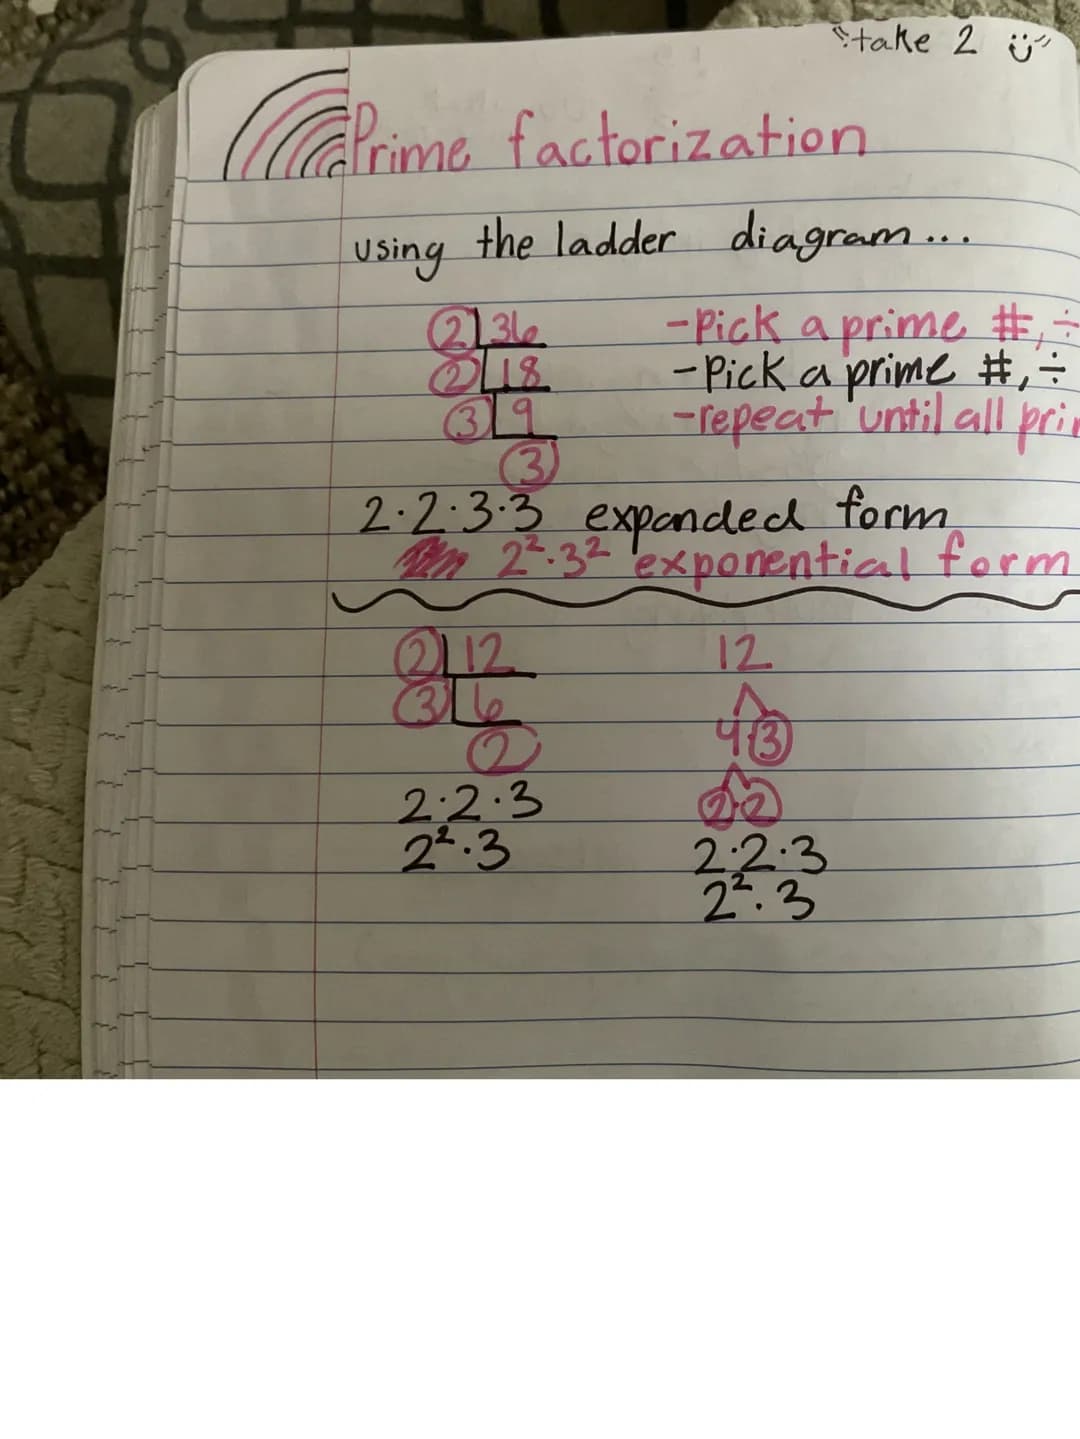 take 2
Prime factorization
using the ladder diagram...
2 36 -Pick a prime #, ÷
2 18 -Pick a prime #, ÷
3 9 -repeat until all
3
2·2·3·3 expanded form
2²·3² exponential form
2 12 12
3 6 4·3
2 2·2
2·2·3 2·2·3
2²·3 2²·3